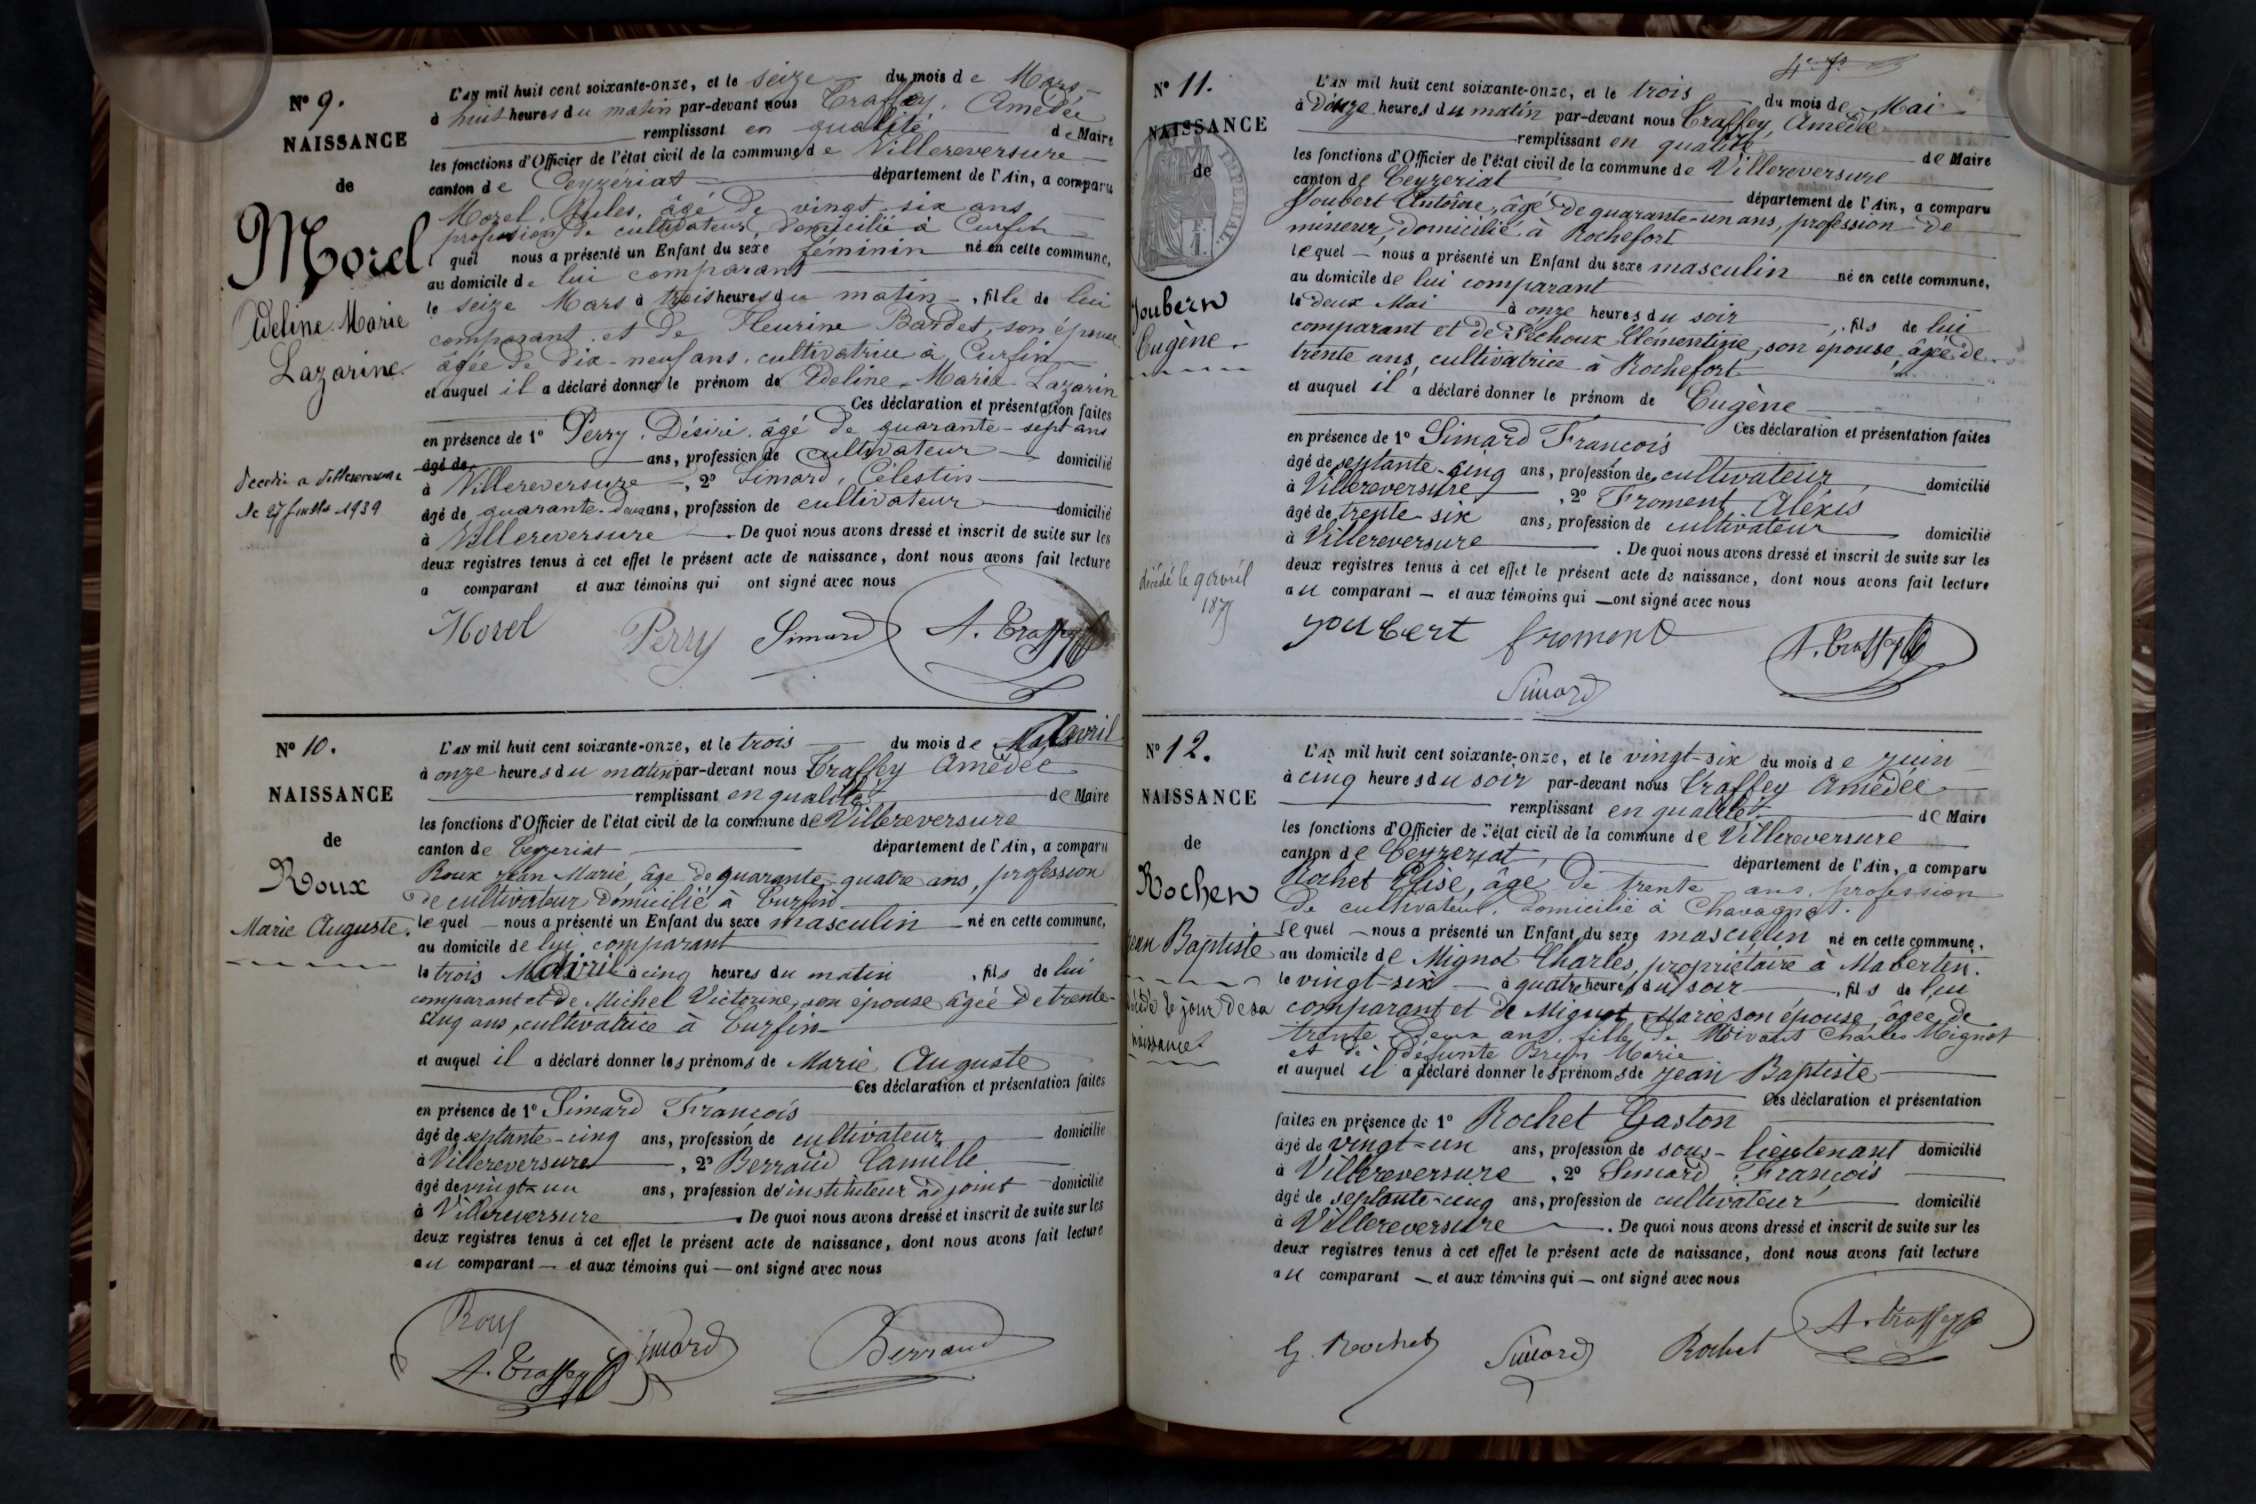 N° 9.
NAISSANCE
de
Morel
Adeline Marie
Lazarine
L'AN mil huit cent soixante-onze, et le seize du mois de Mars
à huit heures du matin par-devant nous Traffey, Amédée
remplissant en qualité de Maire
les fonctions d'Officier de l'état civil de la commune de Villereversure
canton de Ceyzériat département de l'Ain, a comparu
Morel, Jules, âgé de vingt-six ans
profession de cultivateur, domicilié à Curfin
quel nous a présenté un Enfant du sexe féminin né en cette commune,
au domicile de lui comparant
le seize Mars à trois heures du matin, fille de lui
comparant et de Fleurine Bardet, son épouse
âgée de dix-neuf ans, cultivatrice à Curfin
et auquel il a déclaré donner le prénom de Adeline Marie Lazarin
Ces déclaration et présentation faites
en présence de 1° Perry, Désiré, âgé de quarante-sept ans
âgé de ans, profession de cultivateur domicilié
à Villereversure, 2° Simard, Célestin
âgé de quarante-deux ans, profession de cultivateur domicilié
à Villereversure. De quoi nous avons dressé et inscrit de suite sur les
deux registres tenus à cet effet le présent acte de naissance, dont nous avons fait lecture
a comparant et aux témoins qui ont signé avec nous
à Villereversure
le 27 1939
Morel Perry Simard A. Traffey
N° 10.
NAISSANCE
de
Roux
Marie Auguste.
L'AN mil huit cent soixante-onze, et le trois du mois de avril
à onze heures du matin par-devant nous Traffey Amédée
remplissant en qualité de Maire
les fonctions d'Officier de l'état civil de la commune de Villereversure
canton de Ceyzeriat département de l'Ain, a comparu
Roux Jean Marie, âge de quarante-quatre ans, profession
de cultivateur domicilié à Curfin
lequel nous a présenté un Enfant du sexe masculin né en cette commune,
au domicile de lui comparant
le trois avril à cinq heures du matin, fils de lui
comparant et de Michel Victorine, son épouse âgée de trente-
cinq ans, cultivatrice à Curfin
et auquel il a déclaré donner les prénoms de Marie Auguste
Ces déclaration et présentation faites
en présence de 1° Simard François
âgé de septante-cinq ans, profession de cultivateur domicilié
à Villereversure, 2° Berraud Camille
âgé de vingt-un ans, profession de instituteur adjoint domicilié
à Villereversure. De quoi nous avons dressé et inscrit de suite sur les
deux registres tenus à cet effet le présent acte de naissance, dont nous avons fait lecture
au comparant et aux témoins qui ont signé avec nous
Roux Simard Berraud
A. Traffey
N° 11.
NAISSANCE
de
IMPÉRIAL
Joubert
Eugène.
décédé le 9 avril
L'AN mil huit cent soixante-onze, et le trois du mois de Mai
à Douze heures du matin par-devant nous Traffey, Amédée
remplissant en qualité de Maire
les fonctions d'Officier de l'état civil de la commune de Villereversure
canton de Ceyzeriat département de l'Ain, a comparu
Joubert Antoine, âgé de quarante-un ans, profession de
mineur, domicilié à Rochefort
lequel nous a présenté un Enfant du sexe masculin né en cette commune,
au domicile de lui comparant
le deux Mai à onze heures du soir, fils de lui
comparant et de Péchoux Clémentine, son épouse, âgée de
trente ans, cultivatrice à Rochefort
et auquel il a déclaré donner le prénom de Eugène
Ces déclaration et présentation faites
en présence de 1° Simard François
âgé de septante-cinq ans, profession de cultivateur domicilié
à Villereversure, 2° Froment, Aléxis
âgé de trente six ans, profession de cultivateur domicilié
à Villereversure. De quoi nous avons dressé et inscrit de suite sur les
deux registres tenus à cet effet le présent acte de naissance, dont nous avons fait lecture
au comparant et aux témoins qui ont signé avec nous
Joubert froment A. Traffey
Simard
N° 12.
NAISSANCE
de
Rochet
Jean Baptiste
décédé le jour de sa
naissance
L'AN mil huit cent soixante-onze, et le vingt-six du mois de juin
à cinq heures du soir par-devant nous Traffey Amédée
remplissant en qualité de Maire
les fonctions d'Officier de l'état civil de la commune de Villereversure
canton de Ceyzeriat département de l'Ain, a comparu
Rochet Elise, âgé de trente ans, profession
de cultivateur, domicilié à Chavagnat.
lequel nous a présenté un Enfant du sexe masculin né en cette commune,
au domicile de Mignot Charles, propriétaire à Mabertin.
le vingt-six à quatre heures du soir, fils de lui
comparant et de Mignot Marie son épouse âgée de
trente deux ans, fille de vivant Charles Mignot
et de défunte Brun Marie
et auquel il a déclaré donner les prénoms de Jean Baptiste
Ces déclaration et présentation
faites en présence de 1° Rochet Gaston
âgé de vingt-un ans, profession de sous-lieutenant domicilié
à Villereversure, 2° Simard François
âgé de septante-cinq ans, profession de cultivateur domicilié
à Villereversure. De quoi nous avons dressé et inscrit de suite sur les
deux registres tenus à cet effet le présent acte de naissance, dont nous avons fait lecture
au comparant et aux témoins qui ont signé avec nous
G. Rochet Simard Rochet A. Traffey